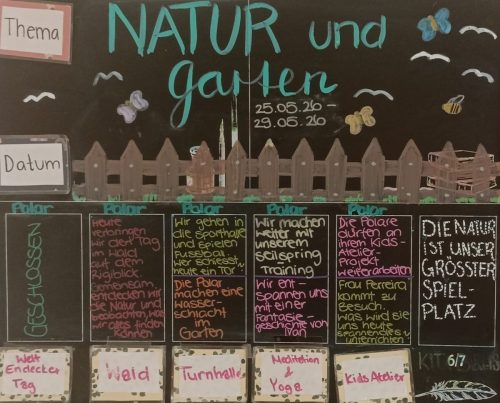 Thema
NATUR und
garten
25.05.26 -
29.05.26
Datum
Polar
GESCHLOSSEN
Welt
Endecker
Tag
Polar
Heute
verbringen
wir den Tag
im Wald
auf dem
Gemeinsam
entdecken wir
die Natur und
beobachten, was
wir alles finden
können
Wald
Polar
Wir gehen in
die Sporthalle
und spielen
Fussball
wer schiesst
heute ein Tor
Die Polar
machen eine
Wasser-
schlacht
im
Garten
Turnhalle
Polar
Wir machen
weiter mit
unserem
Seilspring
Training
Wir ent-
spannen uns
mit einer
Fantasie-
geschichte von
Ivan
Meditation
&
Yoga
Polar
Die Polare
dürfen an
ihrem Kids-
Atelier-
Projekt
weiterarbeiten
Frau Ferreira
kommt zu
Besuch
was wird sie
uns heute
spannendes
unterrichten
Kids Atelier
DIE NATUR
IST UNSER
GRÖSSTER
SPIEL-
PLATZ
KIT 6/7